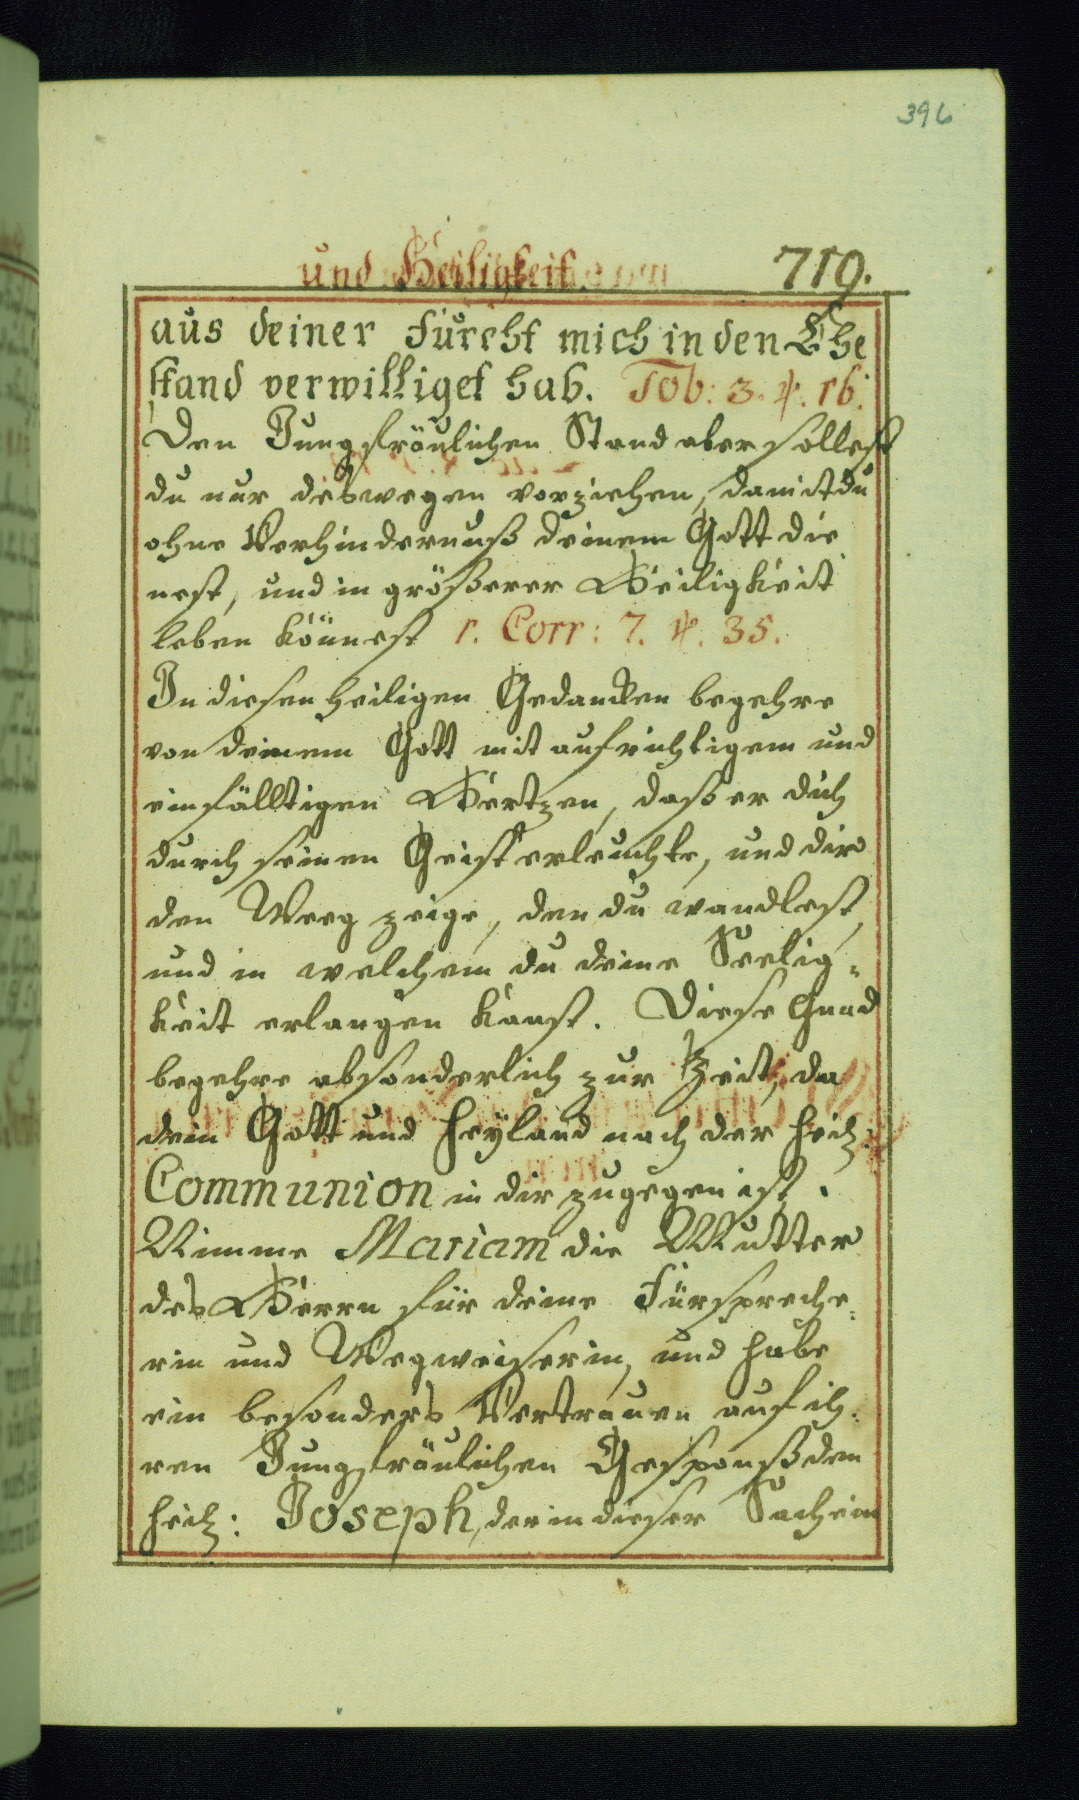 396
und Heiligkeit. 719.
aus deiner Furcht mich in den Ehe
stand verwilliget hab. Tob: 3. ℣. 16.
Den Jungfräulichen Stand aber sollest
du nur deßwegen vorziehen, damit du
ohne Verhindernuß deinem Gott die
nest, und in größerer Heiligkeit
leben könnest 1. Corr: 7. ℣. 35.
In diesen heiligen Gedancken begehre
von deinem Gott mit aufrichtigem und
einfälltigen Hertzen, daß er dich
durch seinen Geist erleuchte, und dir
den Weeg zeige, den du wandlest,
und in welchem du deine Seelig=
keit erlangen kanst. Diese Gnad
begehre absonderlich zur Zeit, da
dein Gott und Heyland nach der heil:
Communion in dir zugegen ist.
Nimme Mariam die Mutter
des Herrn für deine Fürspreche=
rin und Wegweiserin, und habe
ein besonders Vertrauen auf ih=
ren Jungfräulichen Gesponß den
heil: Joseph, der in dieser Sach ein